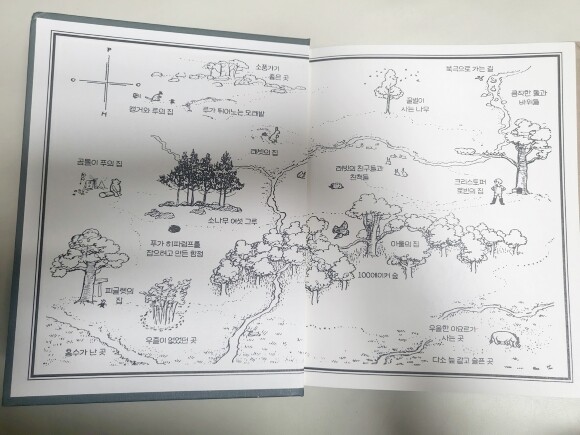 P
H
소풍가기
좋은 곳
캥거와 루의 집
루가 뛰어노는 모래밭
곰돌이 푸의 집
래빗의 집
소나무 여섯 그루
푸가 히파럼프를
잡으려고 만든 함정
피글렛의
집
우즐이 없었던 곳
홍수가 난 곳
북극으로 가는 길
꿀벌이
사는 나무
큼직한 돌과
바위들
래빗의 친구들과
친척들
크리스토퍼
로빈의 집
아울의 집
100에이커 숲
우울한 이요르가
사는 곳
다소 늪 같고 슬픈 곳